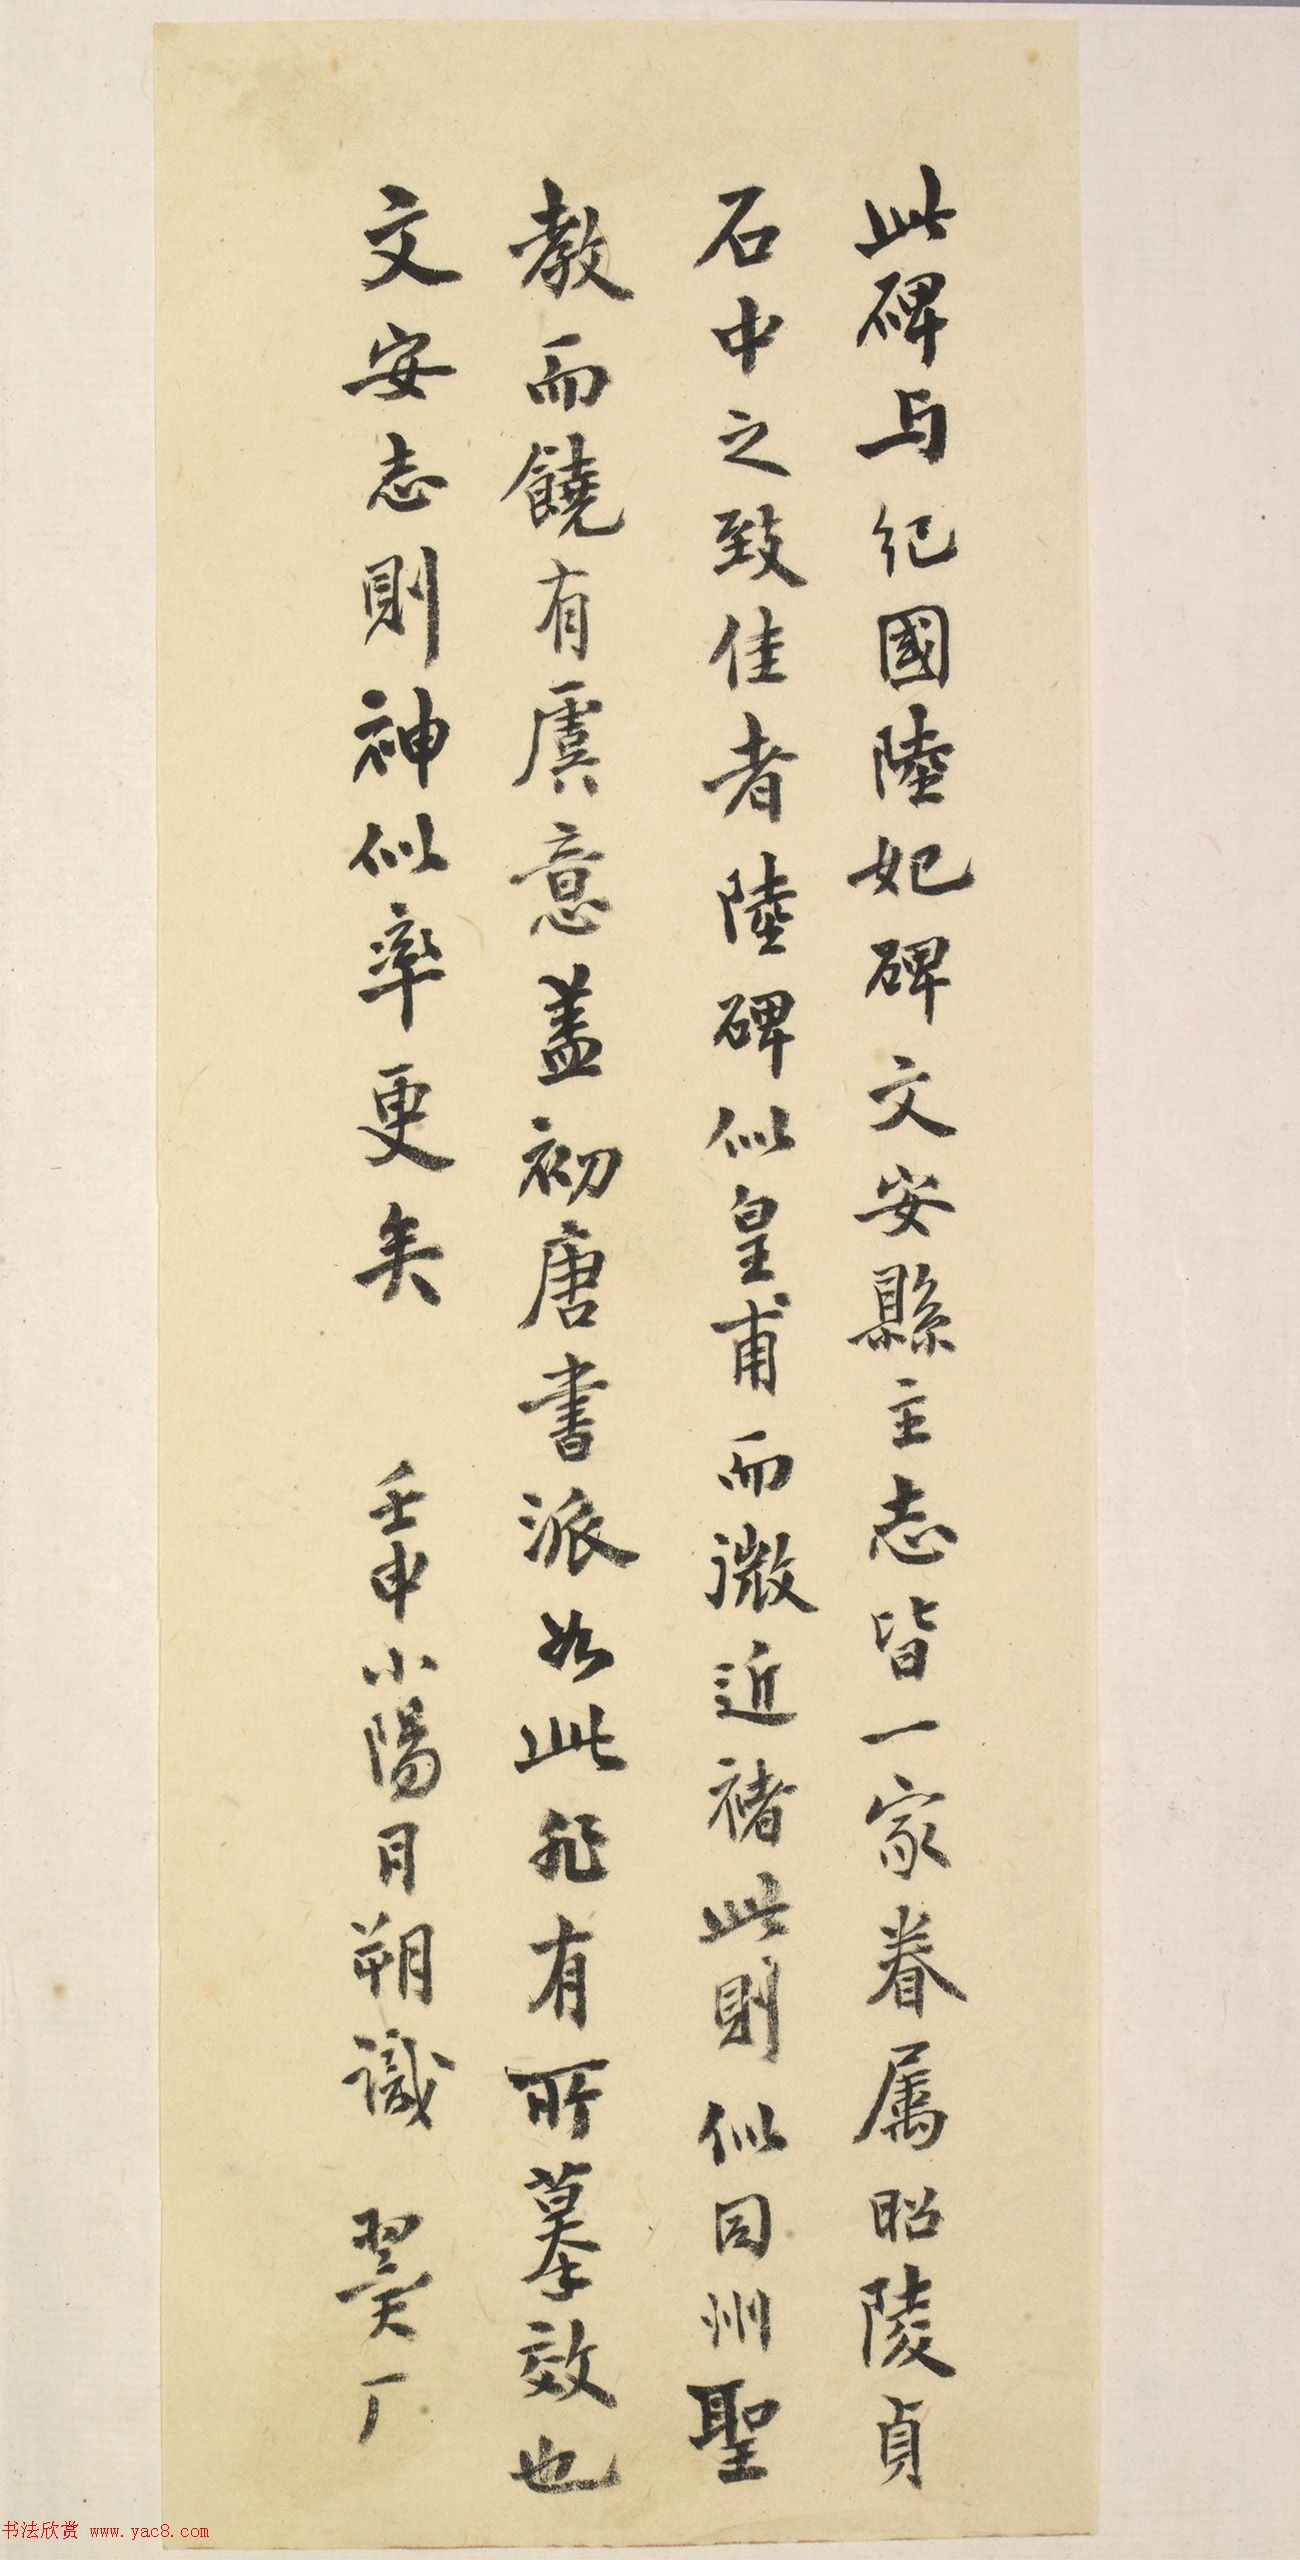 此碑与纪國陸妃碑文安縣主志皆一家眷属昭陵貞
石中之致佳者陸碑似皇甫而微近褚此則似同州聖
教而饒有虞意蓋初唐書派如此非有所摹效也
文安志則神似率更矣 壬申小陽月朔識 翼厂
书法欣赏 www.yac8.com